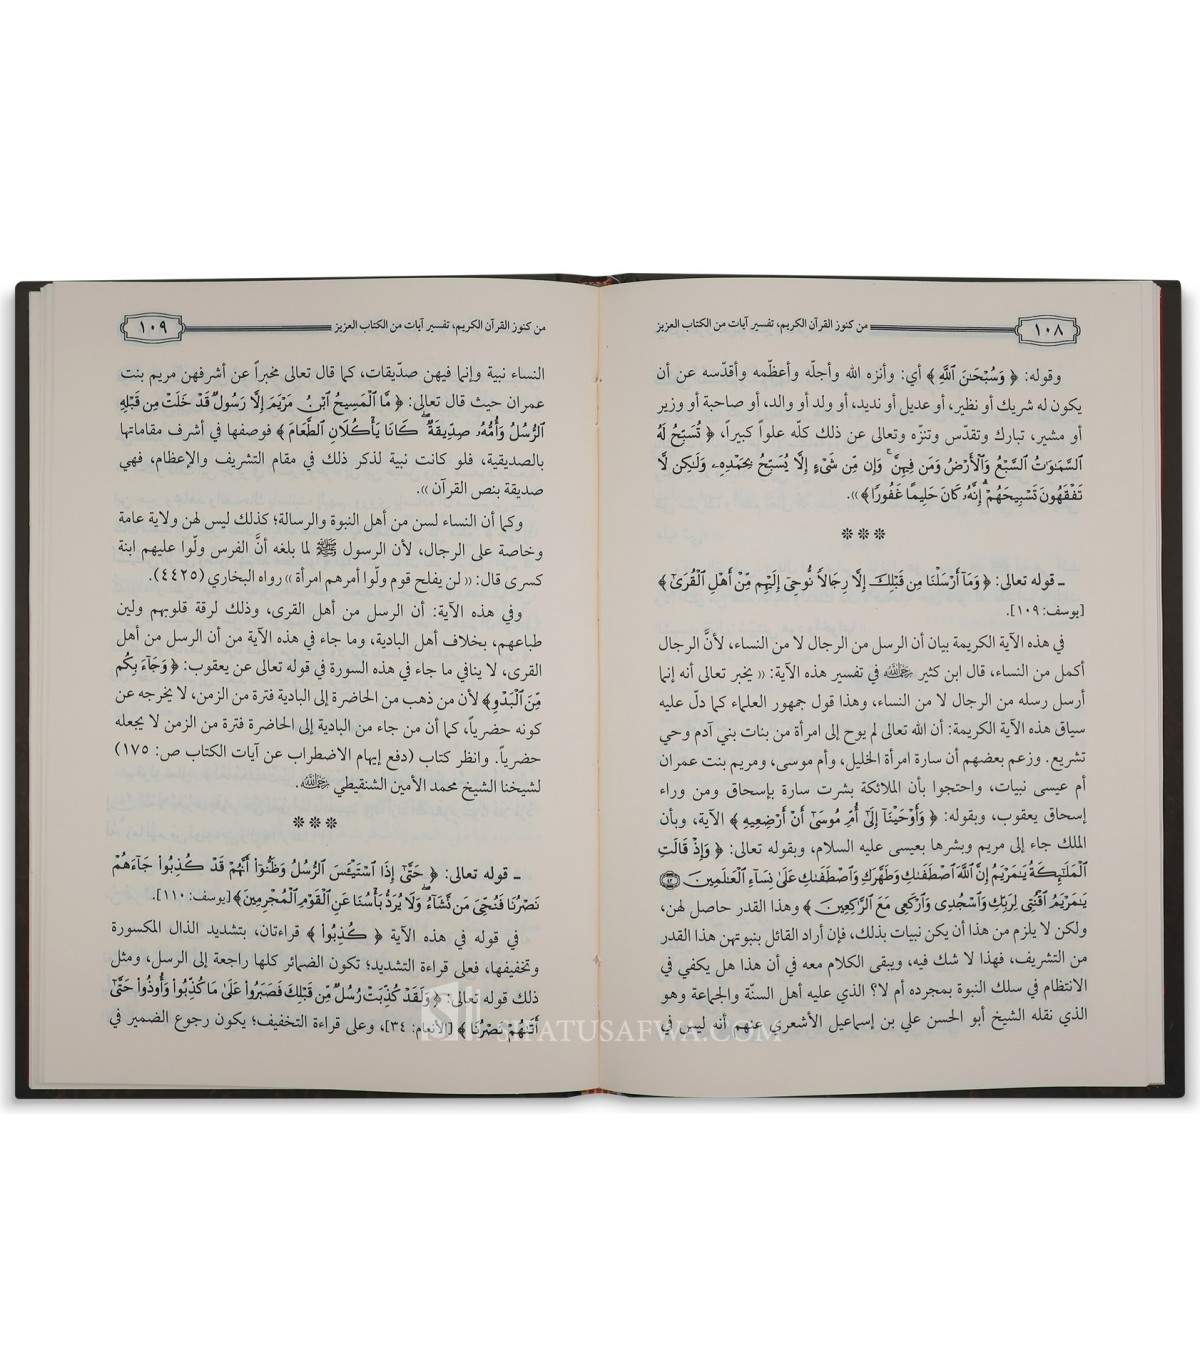 من كنوز القرآن الكريم، تفسير آيات من الكتاب العزيز ١٠٨
وقوله: ﴿ وَسُبْحَٰنَ ٱللَّهِ ﴾ أي: وأنزه الله وأجلّه وأعظّمه وأقدّسه عن أن
يكون له شريك أو نظير، أو عديل أو نديد، أو ولد أو والد، أو صاحبة أو وزير
أو مشير، تبارك وتقدّس وتنزّه وتعالى عن ذلك كلّه علواً كبيراً، ﴿ تُسَبِّحُ لَهُ
ٱلسَّمَٰوَٰتُ ٱلسَّبْعُ وَٱلْأَرْضُ وَمَن فِيهِنَّ ۚ وَإِن مِّن شَىْءٍ إِلَّا يُسَبِّحُ بِحَمْدِهِۦ وَلَٰكِن لَّا
تَفْقَهُونَ تَسْبِيحَهُمْ ۗ إِنَّهُۥ كَانَ حَلِيمًا غَفُورًا ﴾».
***
ـ قوله تعالى: ﴿ وَمَآ أَرْسَلْنَا مِن قَبْلِكَ إِلَّا رِجَالًا نُّوحِىٓ إِلَيْهِم مِّنْ أَهْلِ ٱلْقُرَىٰٓ ﴾
[يوسف: ١٠٩].
في هذه الآية الكريمة بيان أن الرسل من الرجال لا من النساء، لأنَّ الرجال
أكمل من النساء، قال ابن كثير رحمه الله في تفسير هذه الآية: «يخبر تعالى أنه إنما
أرسل رسله من الرجال لا من النساء، وهذا قول جمهور العلماء كما دلّ عليه
سياق هذه الآية الكريمة: أن الله تعالى لم يوح إلى امرأة من بنات بني آدم وحي
تشريع. وزعم بعضهم أن سارة امرأة الخليل، وأم موسى، ومريم بنت عمران
أم عيسى نبيات، واحتجوا بأن الملائكة بشرت سارة بإسحاق ومن وراء
إسحاق يعقوب، وبقوله: ﴿ وَأَوْحَيْنَآ إِلَىٰٓ أُمِّ مُوسَىٰٓ أَنْ أَرْضِعِيهِ ﴾ الآية، وبأن
الملك جاء إلى مريم وبشرها بعيسى عليه السلام، وبقوله تعالى: ﴿ وَإِذْ قَالَتِ
ٱلْمَلَٰٓئِكَةُ يَٰمَرْيَمُ إِنَّ ٱللَّهَ ٱصْطَفَىٰكِ وَطَهَّرَكِ وَٱصْطَفَىٰكِ عَلَىٰ نِسَآءِ ٱلْعَٰلَمِينَ ٤٢
يَٰمَرْيَمُ ٱقْنُتِى لِرَبِّكِ وَٱسْجُدِى وَٱرْكَعِى مَعَ ٱلرَّٰكِعِينَ ﴾ وهذا القدر حاصل لهن،
ولكن لا يلزم من هذا أن يكن نبيات بذلك، فإن أراد القائل بنبوتهن هذا القدر
من التشريف، فهذا لا شك فيه، ويبقى الكلام معه في أن هذا هل يكفي في
الانتظام في سلك النبوة بمجرده أم لا؟ الذي عليه أهل السنّة والجماعة وهو
الذي نقله الشيخ أبو الحسن علي بن إسماعيل الأشعري عنهم أنه ليس في
من كنوز القرآن الكريم، تفسير آيات من الكتاب العزيز ١٠٩
النساء نبية وإنما فيهن صدّيقات، كما قال تعالى مخبراً عن أشرفهن مريم بنت
عمران حيث قال تعالى: ﴿ مَّا ٱلْمَسِيحُ ٱبْنُ مَرْيَمَ إِلَّا رَسُولٌ قَدْ خَلَتْ مِن قَبْلِهِ
ٱلرُّسُلُ وَأُمُّهُۥ صِدِّيقَةٌ ۖ كَانَا يَأْكُلَانِ ٱلطَّعَامَ ﴾ فوصفها في أشرف مقاماتها
بالصديقية، فلو كانت نبية لذكر ذلك في مقام التشريف والإعظام، فهي
صديقة بنص القرآن».
وكما أن النساء لسن من أهل النبوة والرسالة؛ كذلك ليس لهن ولاية عامة
وخاصة على الرجال، لأن الرسول ﷺ لما بلغه أنَّ الفرس ولّوا عليهم ابنة
كسرى قال: «لن يفلح قوم ولّوا أمرهم امرأة» رواه البخاري (٤٤٢٥).
وفي هذه الآية: أن الرسل من أهل القرى، وذلك لرقة قلوبهم ولين
طباعهم، بخلاف أهل البادية، وما جاء في هذه الآية من أن الرسل من أهل
القرى، لا ينافي ما جاء في هذه السورة في قوله تعالى عن يعقوب: ﴿ وَجَآءَ بِكُم
مِّنَ ٱلْبَدْوِ ﴾ لأن من ذهب من الحاضرة إلى البادية فترة من الزمن، لا يخرجه عن
كونه حضرياً، كما أن من جاء من البادية إلى الحاضرة فترة من الزمن لا يجعله
حضرياً. وانظر كتاب (دفع إيهام الاضطراب عن آيات الكتاب ص: ١٧٥)
لشيخنا الشيخ محمد الأمين الشنقيطي رحمه الله.
***
ـ قوله تعالى: ﴿ حَتَّىٰٓ إِذَا ٱسْتَيْـَٔسَ ٱلرُّسُلُ وَظَنُّوٓا۟ أَنَّهُمْ قَدْ كُذِبُوا۟ جَآءَهُمْ
نَصْرُنَا فَنُجِّىَ مَن نَّشَآءُ ۖ وَلَا يُرَدُّ بَأْسُنَا عَنِ ٱلْقَوْمِ ٱلْمُجْرِمِينَ ﴾ [يوسف: ١١٠].
في قوله في هذه الآية ﴿ كُذِبُوا۟ ﴾ قراءتان، بتشديد الذال المكسورة
وتخفيفها، فعلى قراءة التشديد؛ تكون الضمائر كلها راجعة إلى الرسل، ومثل
ذلك قوله تعالى: ﴿ وَلَقَدْ كُذِّبَتْ رُسُلٌ مِّن قَبْلِكَ فَصَبَرُوا۟ عَلَىٰ مَا كُذِّبُوا۟ وَأُوذُوا۟ حَتَّىٰٓ
أَتَىٰهُمْ نَصْرُنَا ﴾ [الأنعام: ٣٤]، وعلى قراءة التخفيف؛ يكون رجوع الضمير في
SIFATUSAFWA.COM